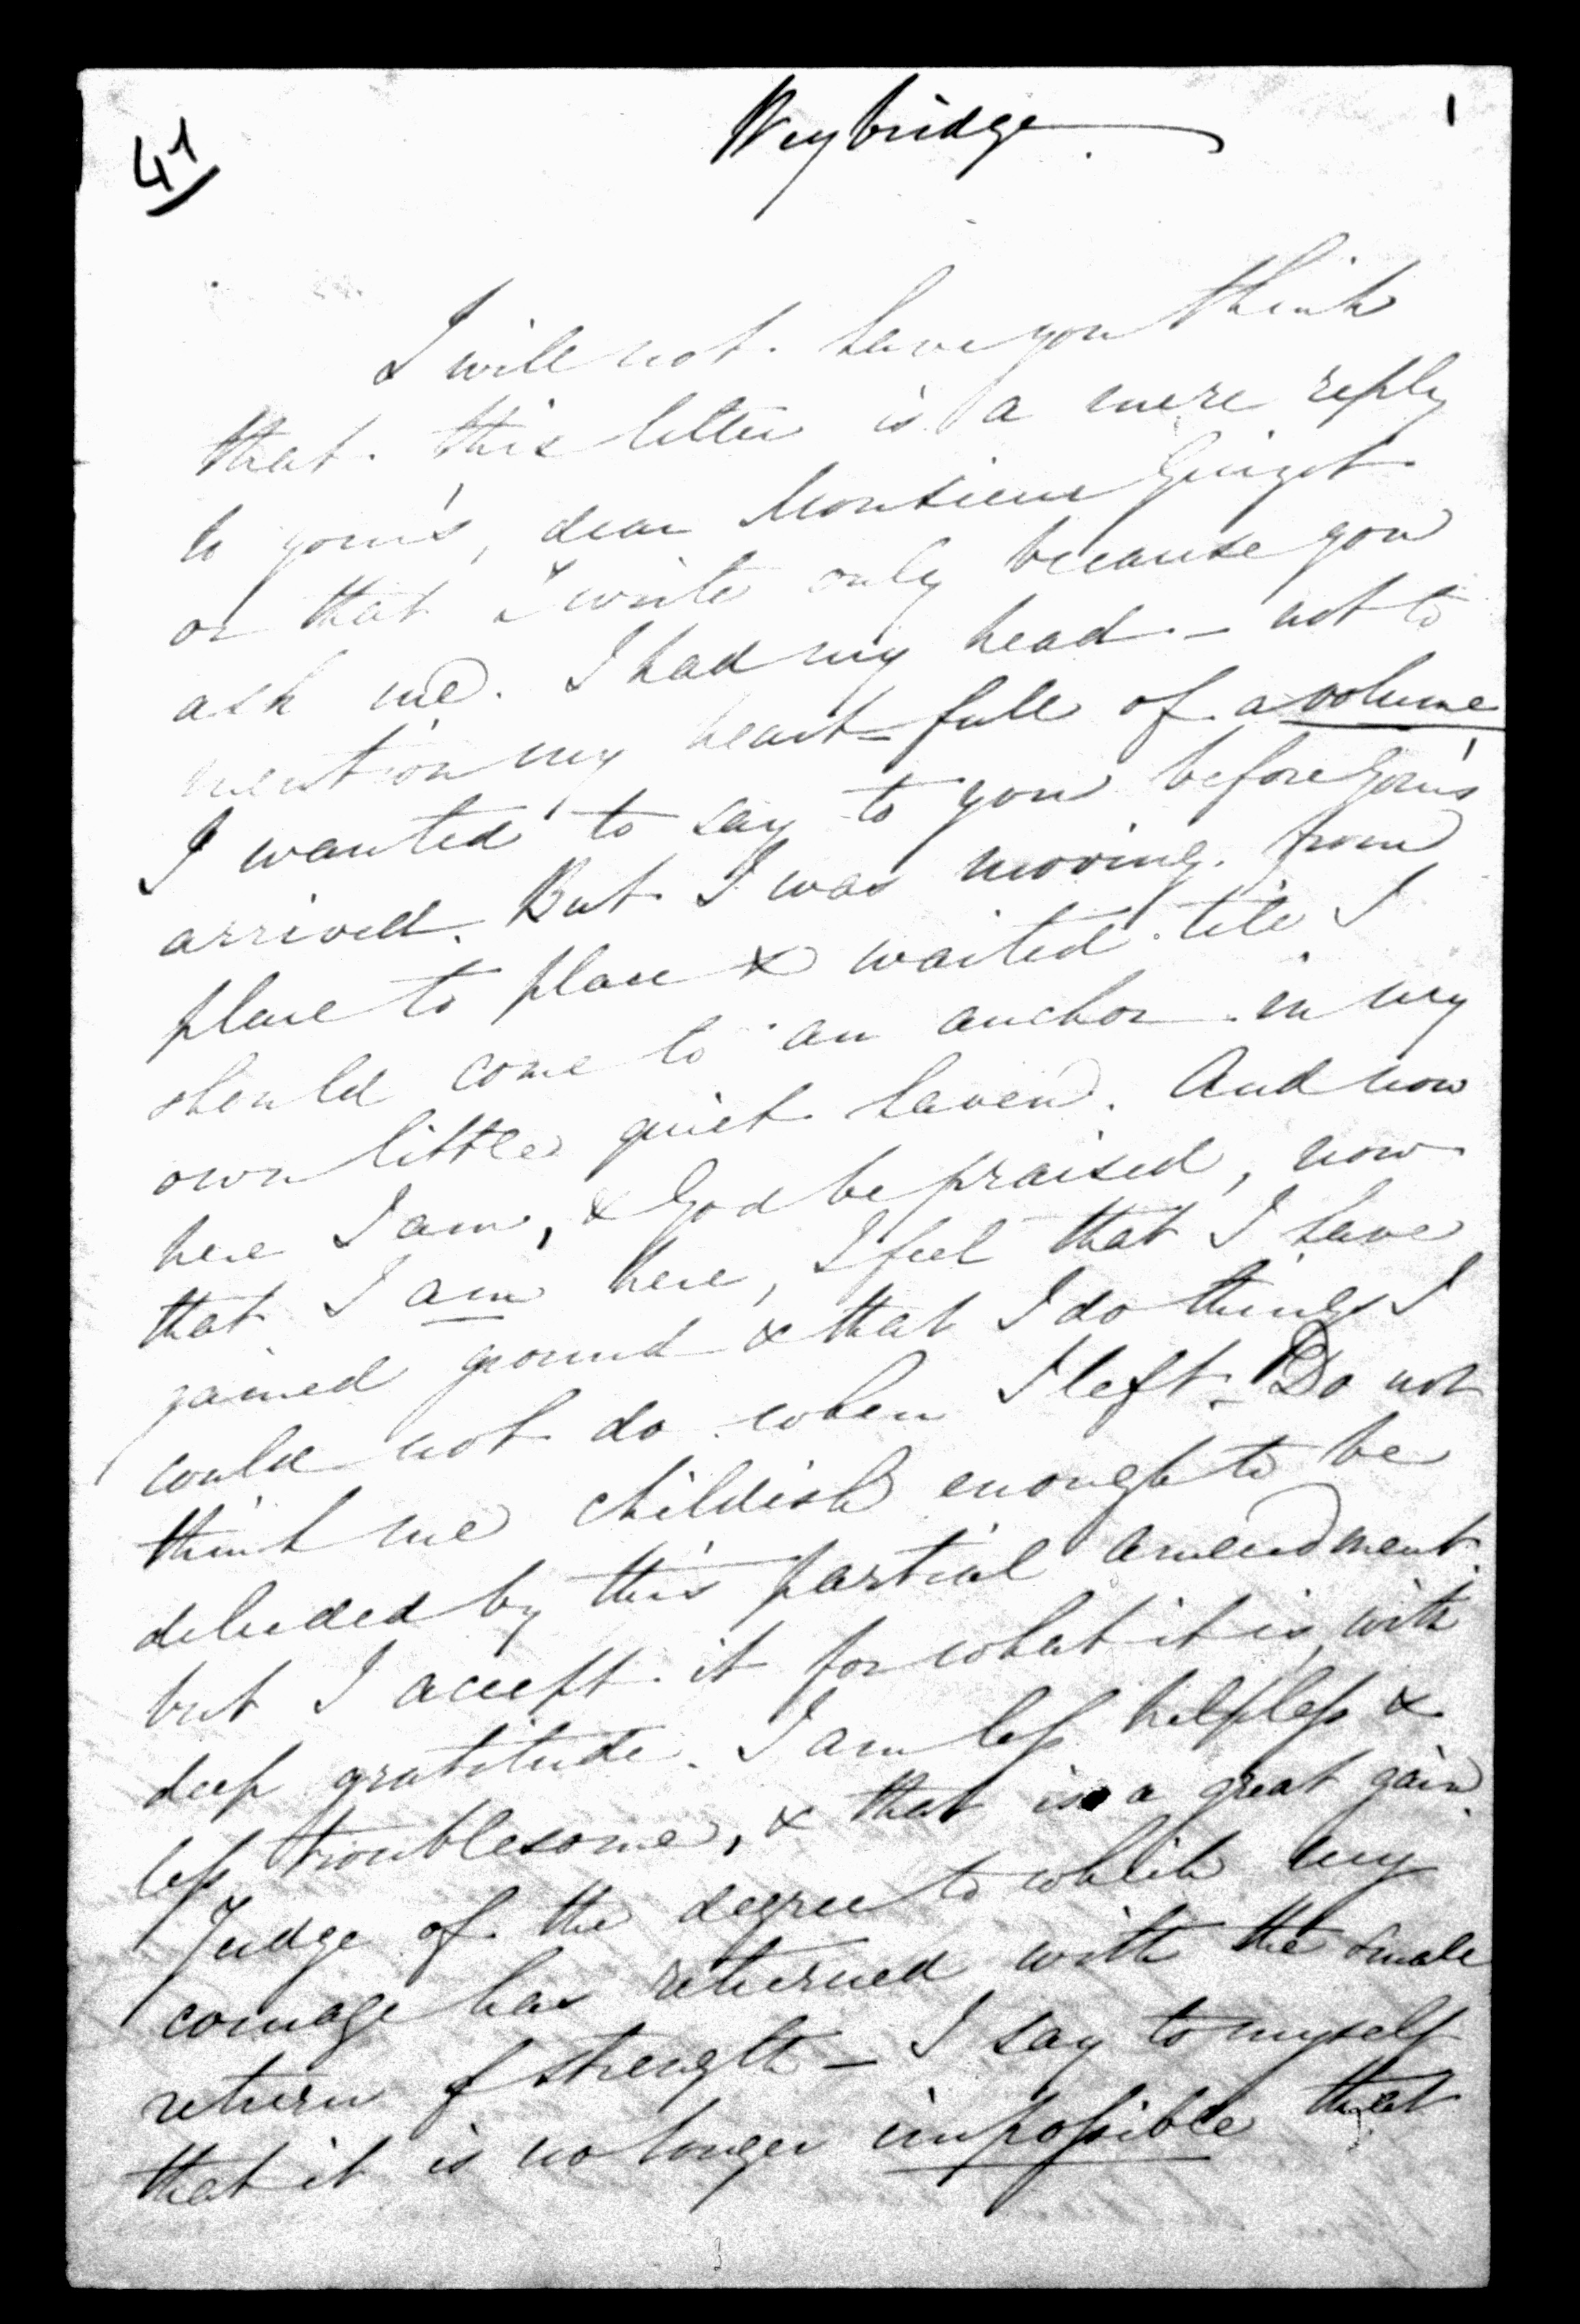 41
Weybridge
1
I will not have you think
that this letter is a mere reply
to your's, dear Monsieur Guizot
or that I write only because you
ask me. I had my head – not to
mention my heart – full of a volume
I wanted to say to you before your's
arrived. But I was moving from
place to place & waited till I
should come to an anchor in my
own little quiet haven. And now
here I am, & God be praised, now
that I am here, I feel that I have
gained ground & that I do things I
could not do when I left. Do not
think me childish enough to be
deluded by this partial amendment.
but I accept it for what it is, with
deep gratitude. I am less helpless &
less troublesome, & that is a great gain
Judge of the degree to which my
courage has returned with the small
return of strength – I say to myself
that it is no longer impossible that